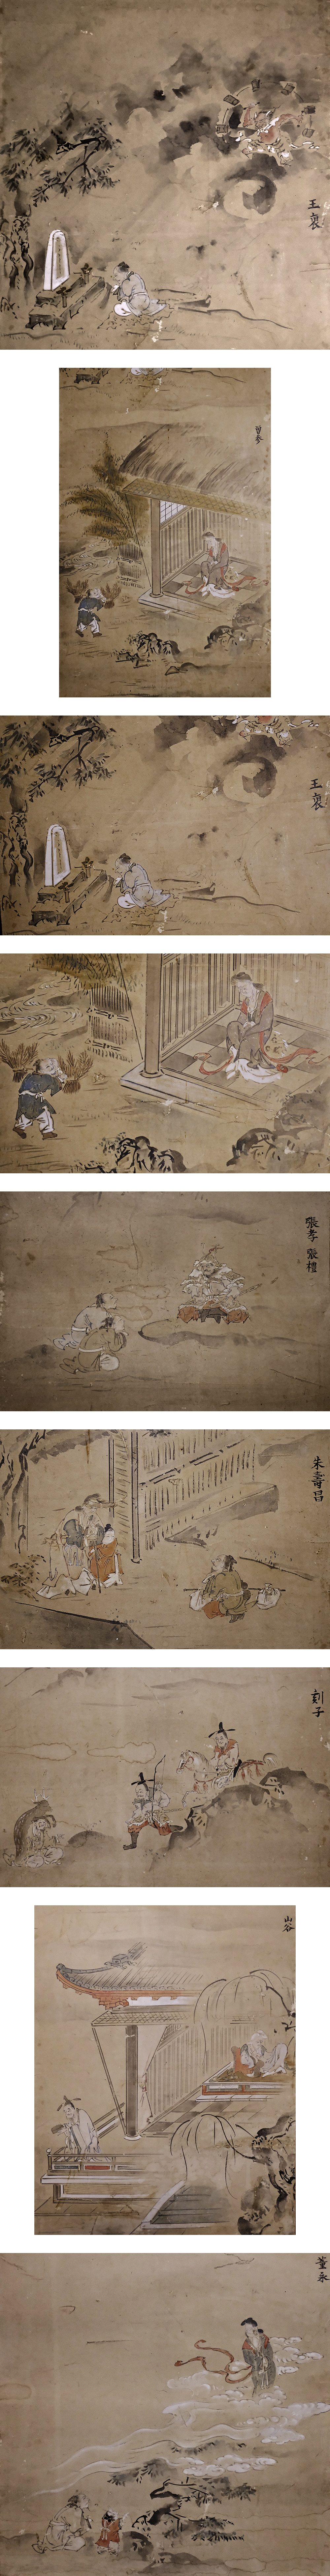 王裒
曽参
王裒
張孝 張禮
朱壽昌
剡子
山谷
董永